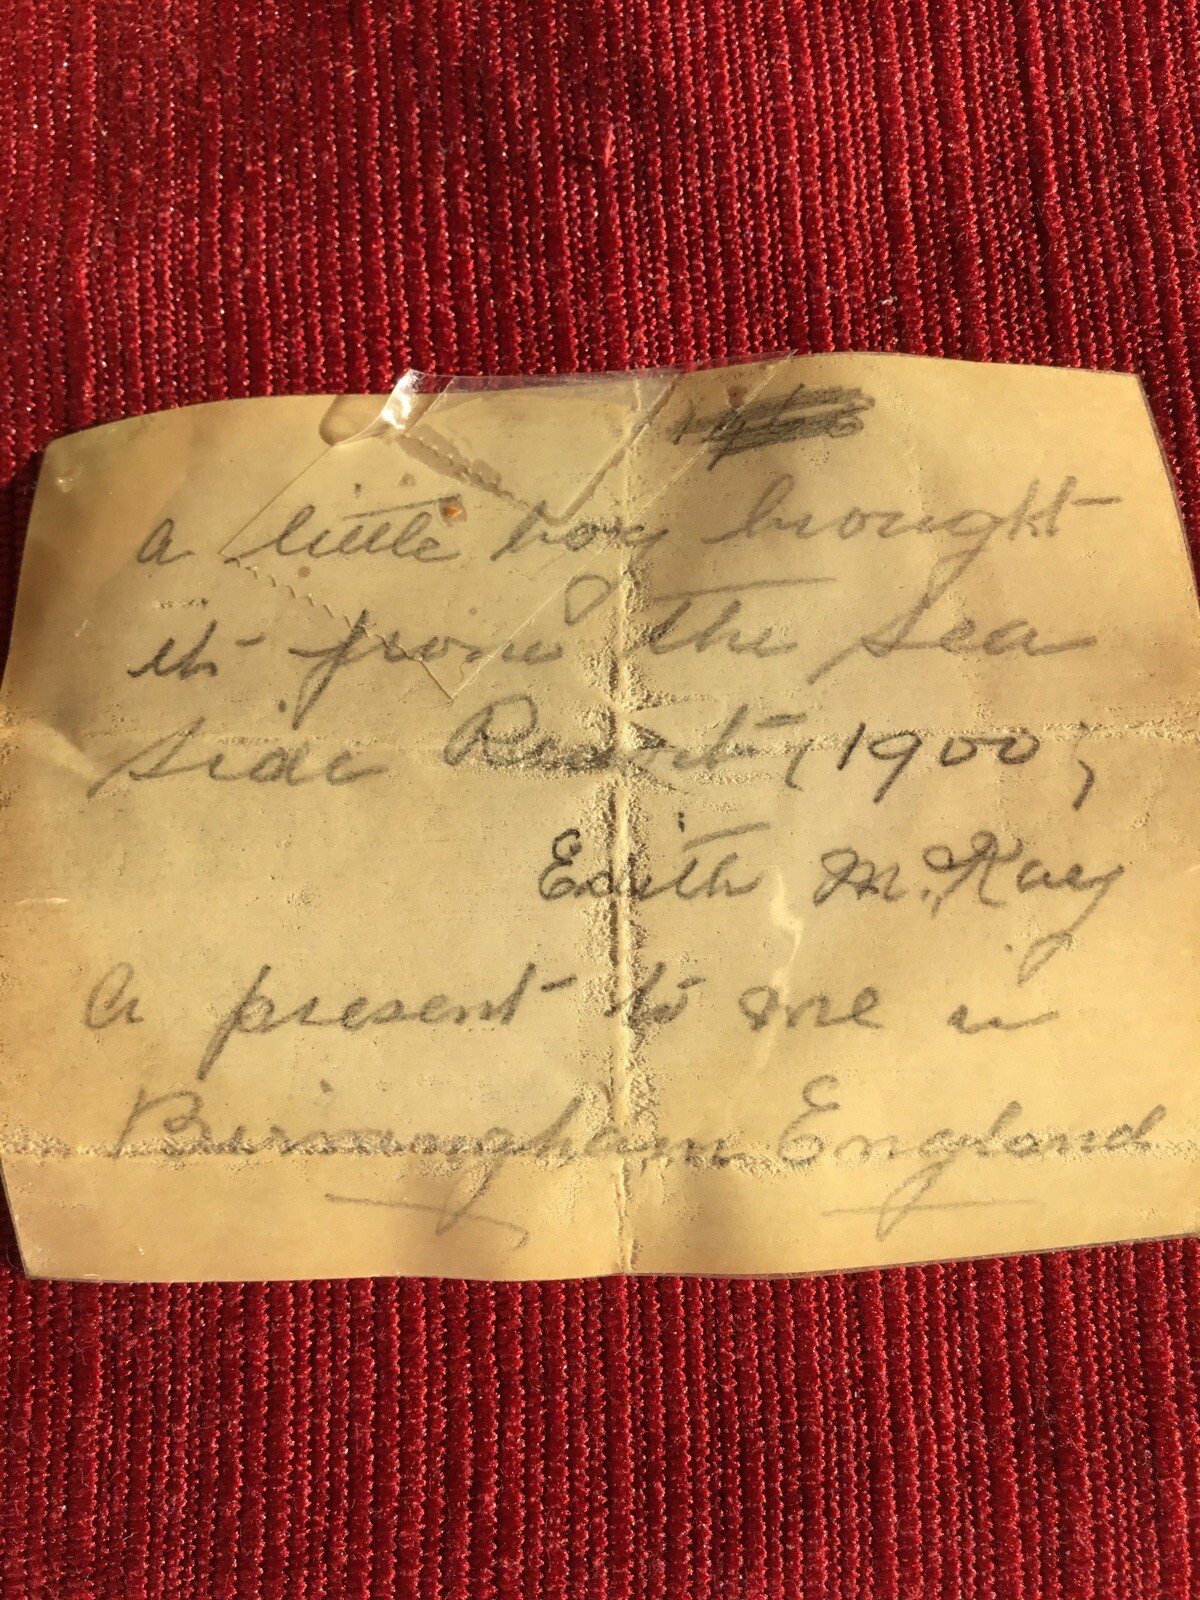 a little boy brought
it from the sea
side Resort, (1900)
Edith McKay
a present to me in
Birmingham England